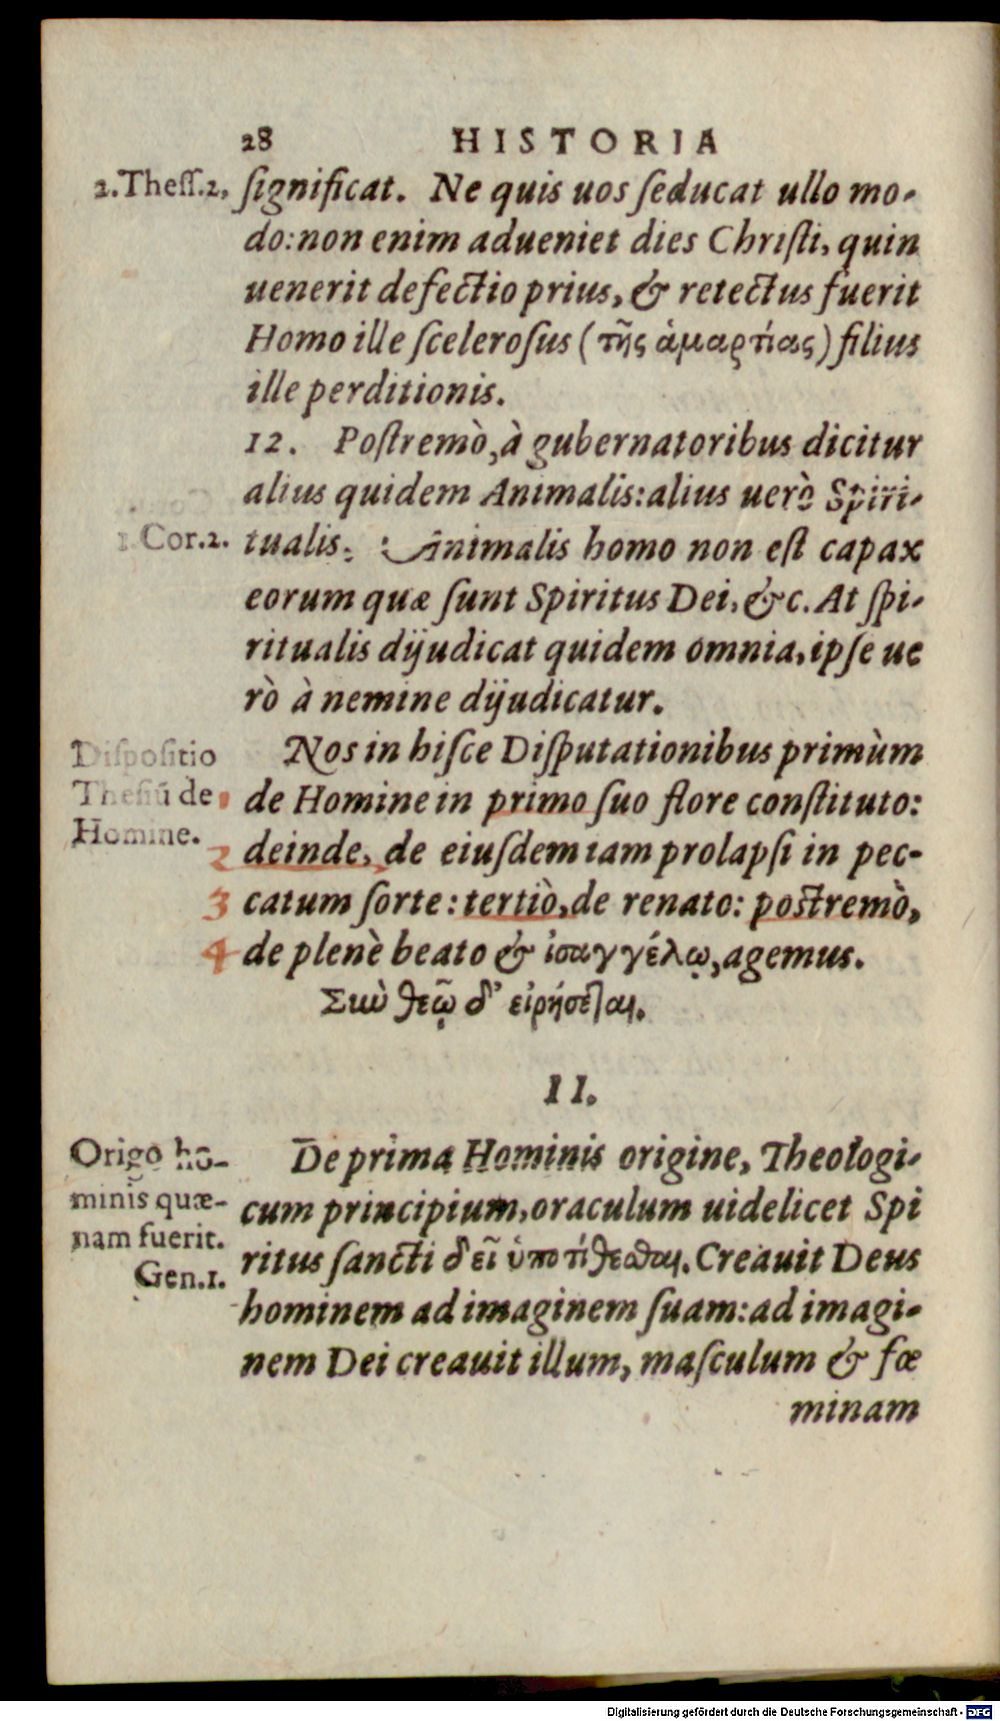 28 HISTORIA
2.Theſſ.2, ſignificat. Ne quis uos ſeducat ullo mo-
do: non enim adueniet dies Chriſti, quin
uenerit defectio prius, & retectus fuerit
Homo ille ſceleroſus (τῆς ἁμαρτίας) filius
ille perditionis.
12. Poſtremò, à gubernatoribus dicitur
alius quidem Animalis: alius uerò Spiri-
1 Cor.2. tualis. Animalis homo non eſt capax
eorum quæ ſunt Spiritus Dei, &c. At ſpi-
ritualis dijudicat quidem omnia, ipſe ue
rò à nemine dijudicatur.
Diſpoſitio
Theſiū de
Homine.
Nos in hiſce Diſputationibus primùm
1 de Homine in primo ſuo flore conſtituto:
2 deinde, de eiuſdem iam prolapſi in pec-
3 catum ſorte: tertiò, de renato: poſtremò,
4 de plenè beato & ἰσαγγέλῳ, agemus.
Σιωὺ θεῷ δ' εἰρήσεται.
II.
Origo ho-
minis quæ-
nam fuerit.
Gen.1.
De prima Hominis origine, Theologi-
cum principium, oraculum uidelicet Spi
ritus ſancti δεῖ ὑποτίθεσθαι. Creauit Deus
hominem ad imaginem ſuam: ad imagi-
nem Dei creauit illum, maſculum & fœ
minam
Digitalisierung gefördert durch die Deutsche Forschungsgemeinschaft - DFG